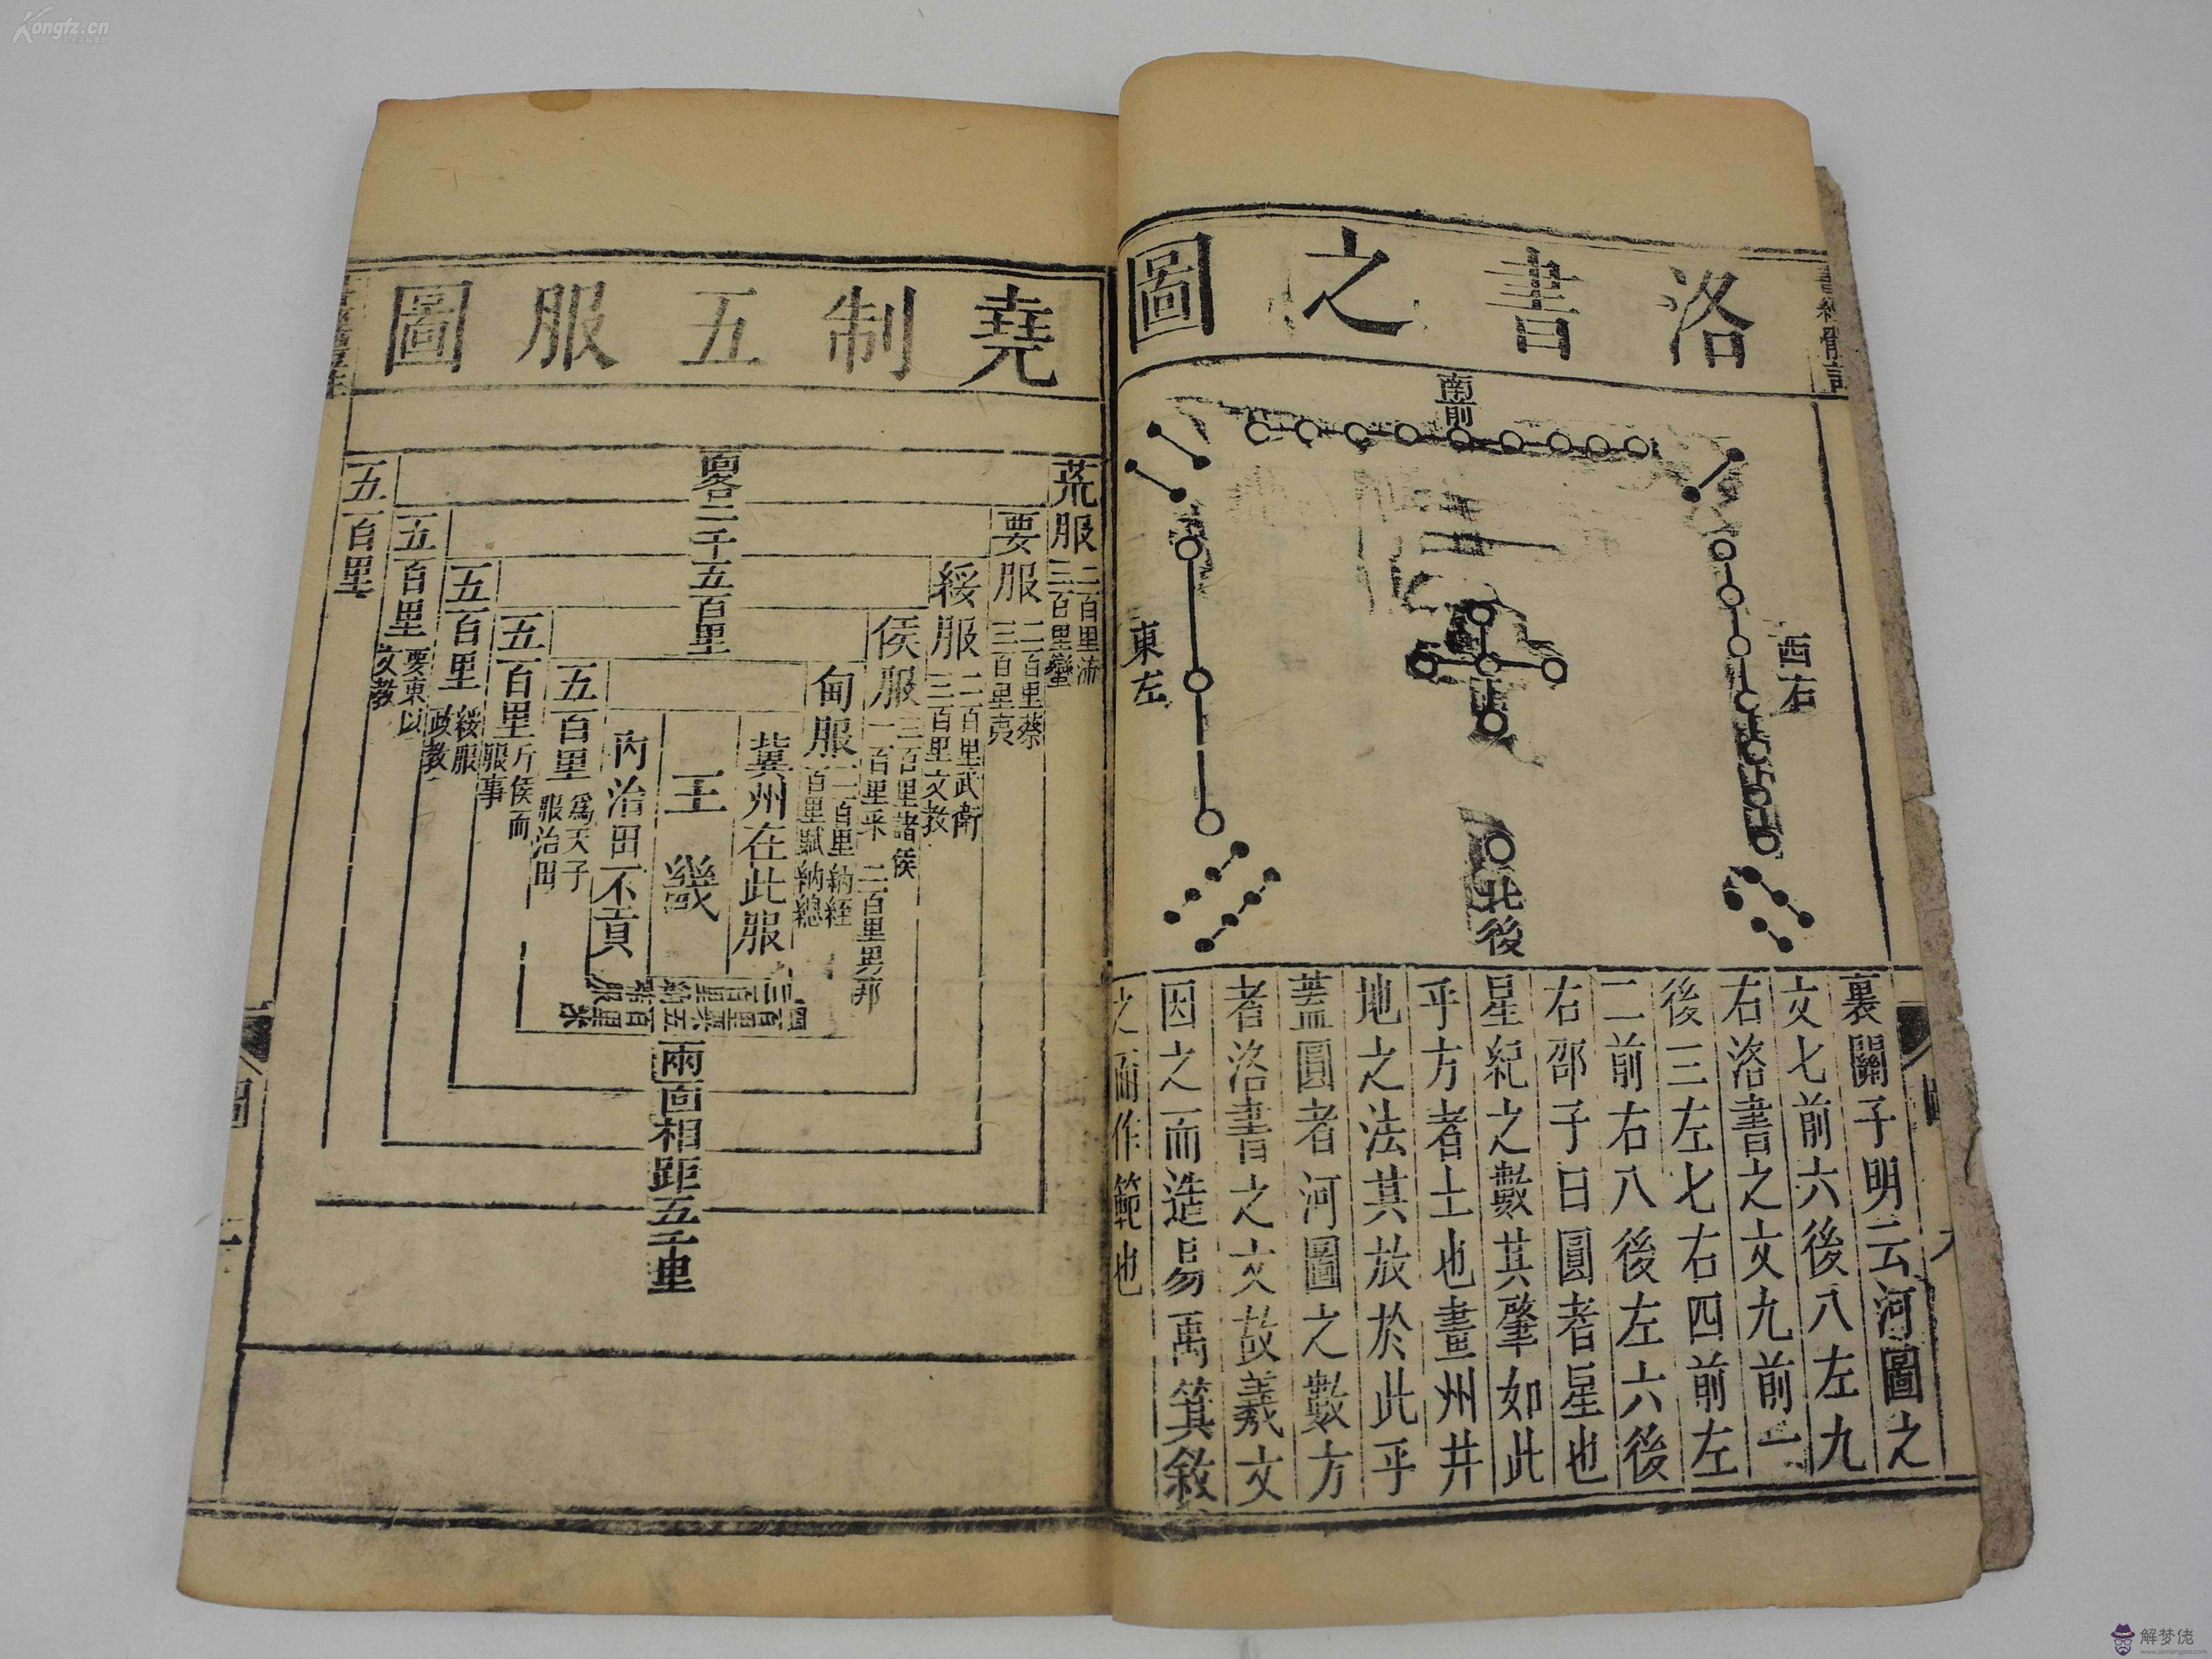 Kongfz.cn
洛書之圖
南前
東左
西右
北後
裏關子明云河圖之
文七前六後八左九
右洛書之文九前一
後三左七右四前左
二前右八後左六後
右邵子曰圓者星也
星紀之數其肇如此
乎方者土也畫州井
地之法其放於此乎
蓋圓者河圖之數方
者洛書之文故羲文
因之而造易禹箕敘
之而作範也
堯制五服圖
面各二千五百里
荒服
二百里流
三百里蠻
要服
二百里蔡
三百里夷
綏服
二百里武衛
三百里文教
侯服
三百里諸侯
一百里采
二百里男邦
甸服
二百里納銍
百里賦納總
冀州在此服
王畿
內治田不貢
五百里
為天子
服治田
五百里
斥侯而
服事
五百里
綏服
政教
五百里
要束以
文教
五百里
三百里納
服
四百里粟五
百里米
兩面相距五千里
圖
二
解梦佬
www.jiemenglao.com